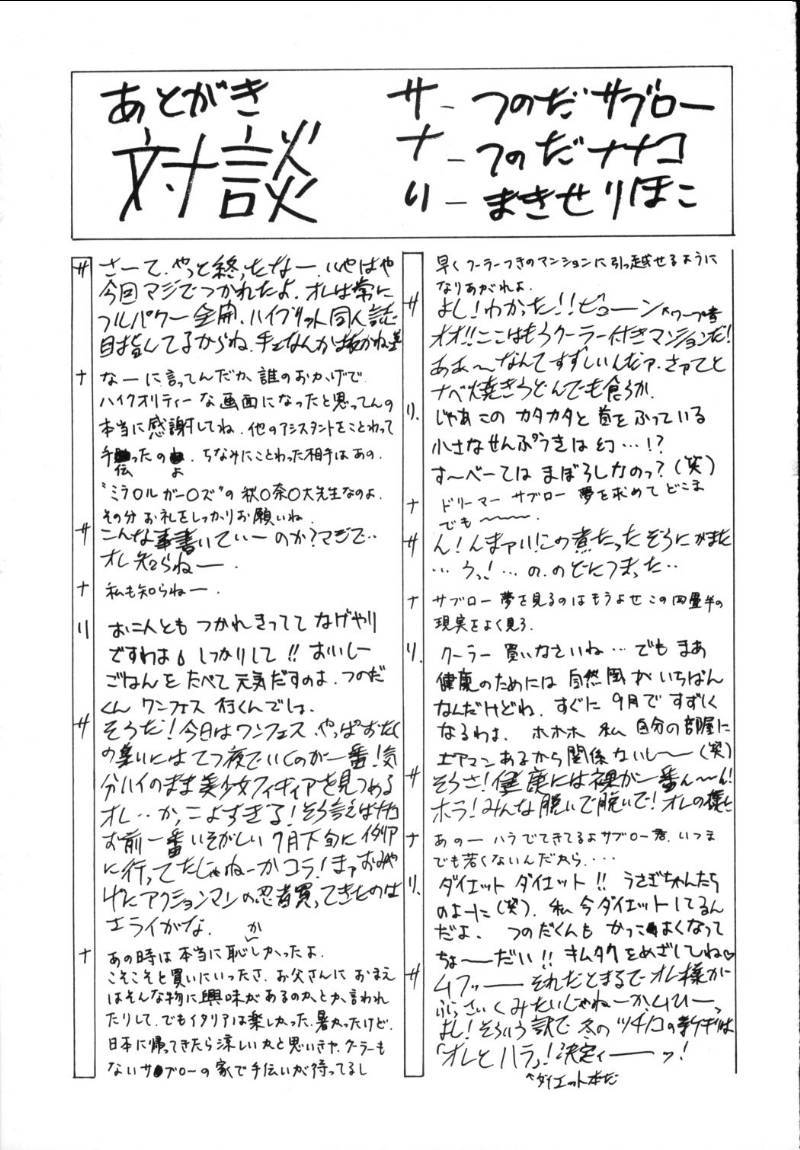 あとがき
対談
サ－つのだサブロー
ナ－つのだナナコ
り－まきせりほこ
サ さーて、やっと終ったなー、いやはや
今回マジでつかれたよ、オレは常に
フルパワー全開、ハイブリット同人誌
目指してるからね、手なんかは抜かねェ
ナ なーに言ってんだか、誰のおかげで
ハイクオリティーな画面になったと思ってんの
本当に感謝してね、他のアシスタントをことわって
手伝ったのよ、ちなみにことわった相手はあの、
“ミラ○ルガー○ズ”の秋○奈○大先生なのよ、
その分お礼をしっかりお願いね、
サ こんな事書いていーのか？マジで‥
オレ知らねー、
ナ 私も知らねー、
り お二人とも つかれきってて なげやり
ですわよ。しっかりして!! おいしー
ごはんをたべて元気だすのよ、つのだ
くん ワンフェス 行くんでしょ、
サ そうだ！今日はワンフェス、やっぱおたく
の集いにはてつ夜でいくのが一番！気
分ハイのまま美少女フィギィアを見つめる
オレ‥かっこよすぎる！そう言えば
お前一番いそがしい7月下旬にイタリア
に行ってたじゃねーかコラ！まァおみや
げにアクションマンの忍者買ってきたのは
エライがな、
ナ あの時は本当に恥かしかったよ、
こそこそと買いにいったさ、お父さんに おまえ
はそんな物に興味があるのかとか、言われ
たりして、でもイタリアは楽しかった、暑かったけど、
日本に帰ってきたら涼しいかと思いきや、クーラーも
ないサブローの家で手伝いが待ってるし
早くクーラーつきのマンションに引っ越せるように
なりあがれよ、
サ よし！わかった!!ビューン←ワープ音
オオ!!ここはもうクーラー付きマンションだ！
ああ〜なんてすずしいんだァ、さァてと
ナベ焼きうどんでも食うか、
り、 じゃあこの カタカタと首をふっている
小さなせんぷうきは幻…!?
す〜べーては まぼろしなのっ？（笑）
ナ ドリーマー サブロー 夢を求めて どこま
でも〜〜〜、
サ ん！んまァい！この煮たったぞうにがまた
…うっ！…の、のどにつまった‥
ナ サブロー 夢を見るのはもうよせ この四畳半の
現実をよく見ろ、
り、 クーラー 買いなさいね…でも まあ
健康のためには 自然風がいちばん
なんだけどね、すぐに 9月で すずしく
なるわよ、 ホホホ 私 自分の部屋に
エアコンあるから関係ないし〜（笑）
サ そうさ！健康には裸が一番ん〜ん！
ホラ！みんな脱いで脱いで！オレの様に
ナ あのー ハラでてきてるよサブロー君、いつま
でも若くないんだから、‥‥
り、 ダイエット ダイエット!! うさぎちゃんたち
のよーに（笑）、私 今ダイエットしてるん
だよ、 つのだくんも かっこよくなって
ちょーだい!! キムタクをめざしてね♡
サ ムフッーー それだとまるでオレ様が
ぶさいくみたいじゃねーか、ムひーっ
よし！そういう訳で 冬のツチノコの新刊は
「オレとハラ」！決定ィーーッ！
↑ダイエット本だ